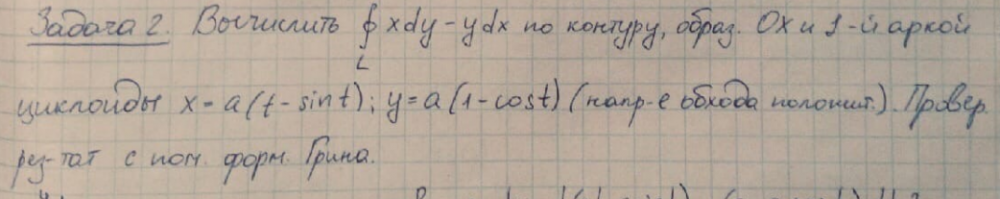 Задача 2. Вычислить ∮ xdy - ydx по контуру, образ. OX и 1-й аркой
L
циклоиды x = a(t - sint); y = a(1 - cost) (напр-е обхода положит.). Провер.
рез-тат с пом. форм. Грина.